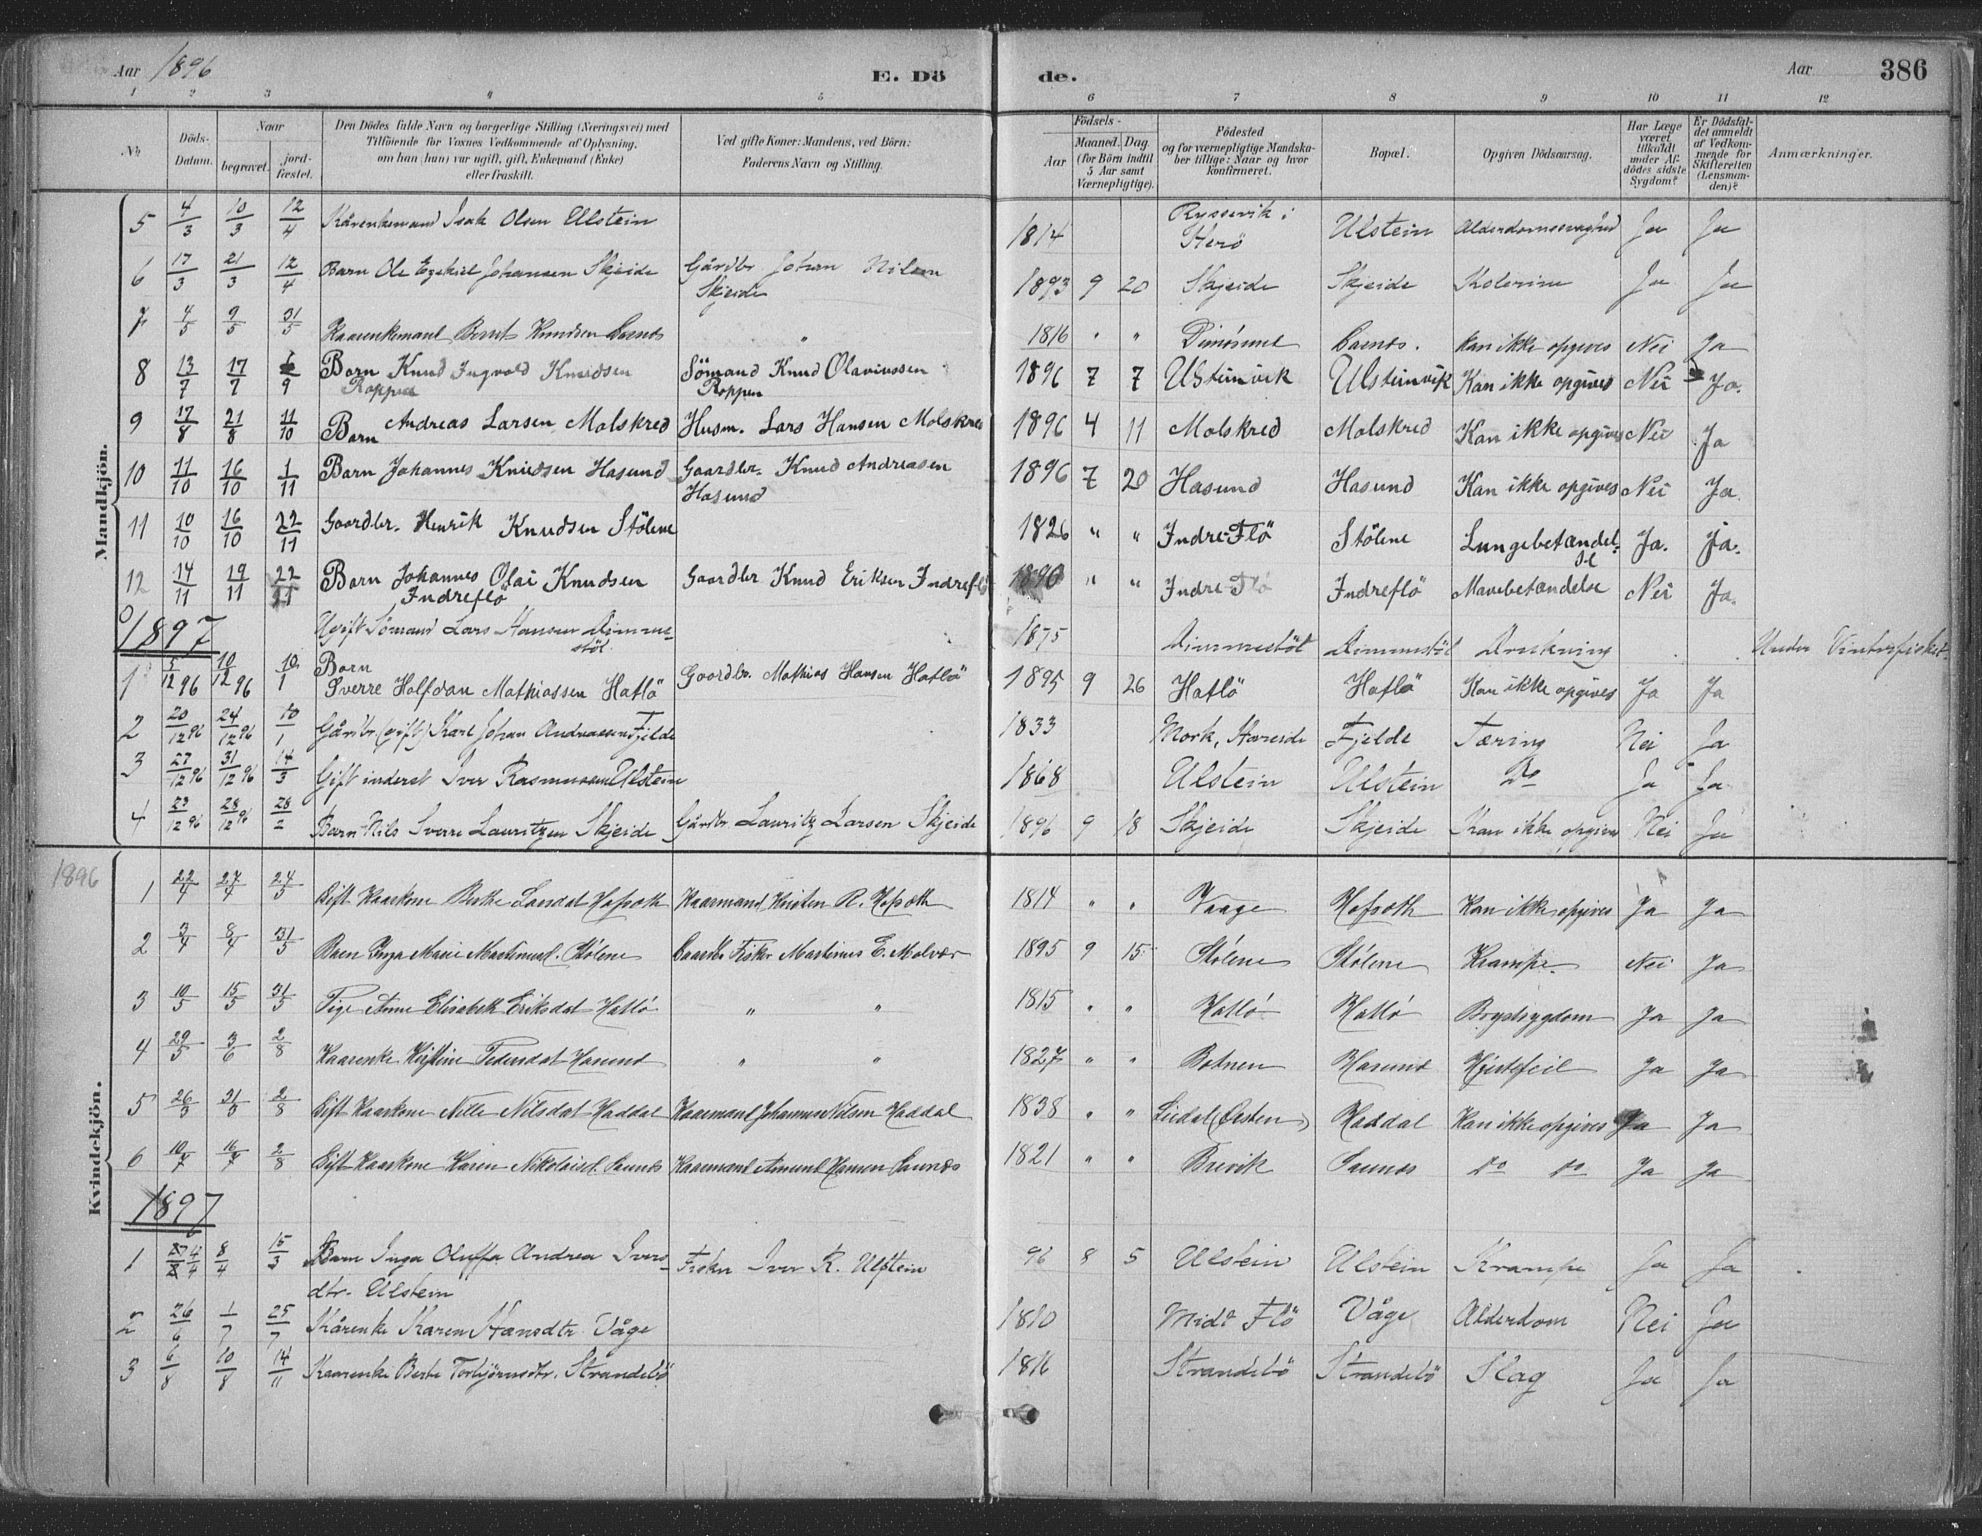 Aar 1896 E. Döde. Aar 386
1 2 3 4 5 6 7 8 9 10 11 12
No. Döds-Datum. Naar begravet. jordfæstet. Den Dödes fulde Navn og borgerlige Stilling (Næringsvei) med Tilföiende for Voxnes Vedkommende af Oplysning, om han (hun) var ugift, gift, Enkemand (Enke) eller fraskilt. Ved gifte Koner: Mandens, ved Börn: Faderens Navn og Stilling. Födsels- Aar Maaned. Dag (for Börn indtil 5 Aar samt Værnepligtige). Födested og for værnepligtige Mandskaber tillige: Naar og hvor konfirmeret. Bopæl. Opgiven Dödsaarsag. Har Læge været tilkaldt under Afdödes sidste Sygdom? Er Dödsfaldet anmeldt af Vedkommende for Skifteretten (Lensmanden)? Anmærkninger.
Mandkjön.
5 4/3 10/3 12/4 Kårenkemand Isak Olsen Ulstein 1814 i Herö Ulstein Alderdomssvaghed Ja Ja
6 17/3 21/3 12/4 Barn Ole Ezekiel Johansen Skjeide Gårdbr Johan Nilsen Skjeide 1893 9 20 Skjeide Skjeide Kolerine Ja Ja
7 4/5 9/5 31/5 Kaarenkemand Bernt Knudsen 1816 " " kan ikke opgives Nei Ja
8 13/7 17/7 /9 Barn Knud Ingvald Knudsen Roppen Sömand Knud Olaviussen Roppen 1896 7 7 Ulsteinvik Ulsteinvik Kan ikke opgives Nei Ja.
9 17/8 21/8 11/10 Barn Andreas Larsen Molskred Husm. Lars Hansen Molskred 1896 4 11 Molskred Molskred Kan ikke opgives Nei Ja
10 11/10 16/10 1/11 Barn Johannes Knudsen Hasund Gaardbr. Knud Andreasen Hasund 1896 7 20 Hasund Hasund Kan ikke opgives Nei Ja.
11 10/10 16/10 22/11 Gaardbr. Henrik Knudsen Stölene 1826 " " Indre-Flö Stölene Lungebetændelse Ja. Ja.
12 14/11 19/11 22/11 Barn Johannes Olai Knudsen Indreflö Gaardbr Knud Eriksen Indreflö 1890 " " Indre-Flö Indreflö Mavebetændelse Nei Ja.
0 Ugift Sömand Lars Hansen Dimmestöl 1875 Dimmestöl Dimmestöl Drukning Under Vinterfisket
1897
1 5/12 96 10/12 96 10/1 Barn Sverre Halfdan Mathiassen Hatlö Gaardbr. Mathias Hansen Hatlö 1895 9 26 Hatlö Hatlö Kan ikke opgives Ja Ja
2 20/12 96 24/12 96 10/1 Gårdbr. (gift) Karl Johan Andreassen Fjelde 1833 Mork, Fjelde Tæring Nei Ja
3 27/12 96 31/12 96 14/3 Gift inderst Iver Rasmussen Ulstein 1868 Ulstein Ulstein Do Ja Ja
4 23/12 96 28/12 96 28/2 Barn Nils Sverre Lauritzen Skjeide Gårdbr Lauritz Larsen Skjeide 1896 9 18 Skjeide Skjeide Kan ikke opgives Nei Ja
Kvindekjön.
1896
1 22/4 27/4 24/5 Gift Kaarkone Berthe Larsdat Hofsæth Kaarmand Kristen R. Hofsæth 1814 " " Vaage Hofsæth Kan ikke opgives Ja Ja
2 3/4 8/4 31/5 Barn Inga Marie Martinusd. Stölene Fisker Martinus E. Molvær 1895 9 15 Stölene Stölene Krampe. Nei Ja
3 10/5 15/5 31/5 Pige Anne Elisabeth Eriksdat Hatlö " " 1815 " " Hatlö Hatlö Brystsygdom Ja Ja
4 29/5 3/6 2/8 Kaarenke Kirstine Pedersdat Hasund " " 1827 " " Botnen Hasund Hjertefeil Ja Ja
5 26/5 31/5 2/8 Gift Kaarkone Nille Nilsdat Haddal Kaarmand Johannes Nilsen Haddal 1838 " " (Örsten) Haddal Kan ikke opgives Ja Ja
6 10/7 16/7 2/8 Gift Kaarkone Karen Nikolaisd. Saunes Kaarmand Amund Hansen Saunes 1821 " " Brevik Saunes Do Do Ja Ja
1897
1 4/4 8/4 15/3 Barn Inga Oluffa Andrea Iversdtr. Ulstein Fisker Iver R. Ulstein 96 8 5 Ulstein Ulstein Krampe Ja Ja
2 26/6 1/7 25/7 Kårenke Karen Hansdtr Våge 1810 Midt Flö Våge Alderdom Nei Ja
3 6/8 10/8 14/11 Kaarenke Berte Torbjörnsdtr. Strandebö 1816 Strandebö Strandebö Slag Ja Ja